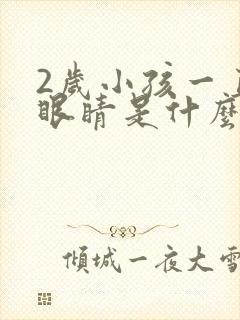 2歲小孩一
眼睛是什麼
傾城一夜大雪